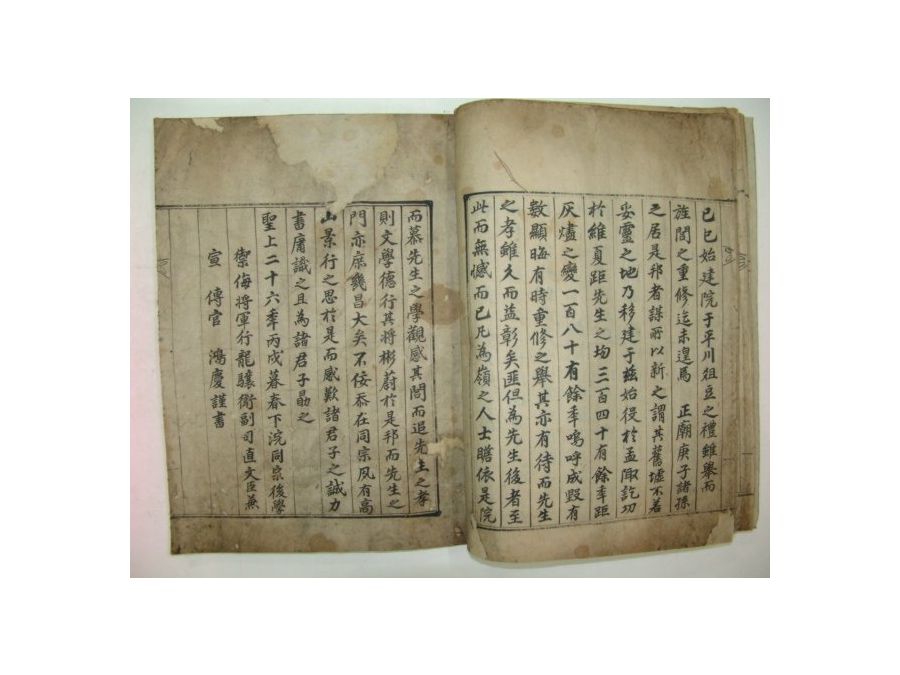 己巳始建院于平川俎豆之禮雖擧而
旌閭之重修迄未遑焉　正廟庚子諸孫
之居是邦者謀所以新之謂其舊墟不若
妥靈之地乃移建于玆始役於孟陬訖功
於維夏距先生之均三百四十有餘年距
灰燼之變一百八十有餘年嗚呼成毁有
數顯晦有時重修之擧其亦有待而先生
之孝雖久而益彰矣匪但爲先生後者至
此而無憾而已凡爲嶺之人士瞻依是院
而慕先生之學觀感其閭而追先生之孝
則文學德行其將彬蔚於是邦而先生之
門亦庶幾昌大矣不佞忝在同宗夙有高
山景行之思於是而感歎諸君子之誠力
書庸識之且為諸君子勗之
聖上二十六年丙戌暮春下浣同宗後學
禦侮將軍行龍驤衛副司直文臣兼
宣　傳官　鴻慶謹書